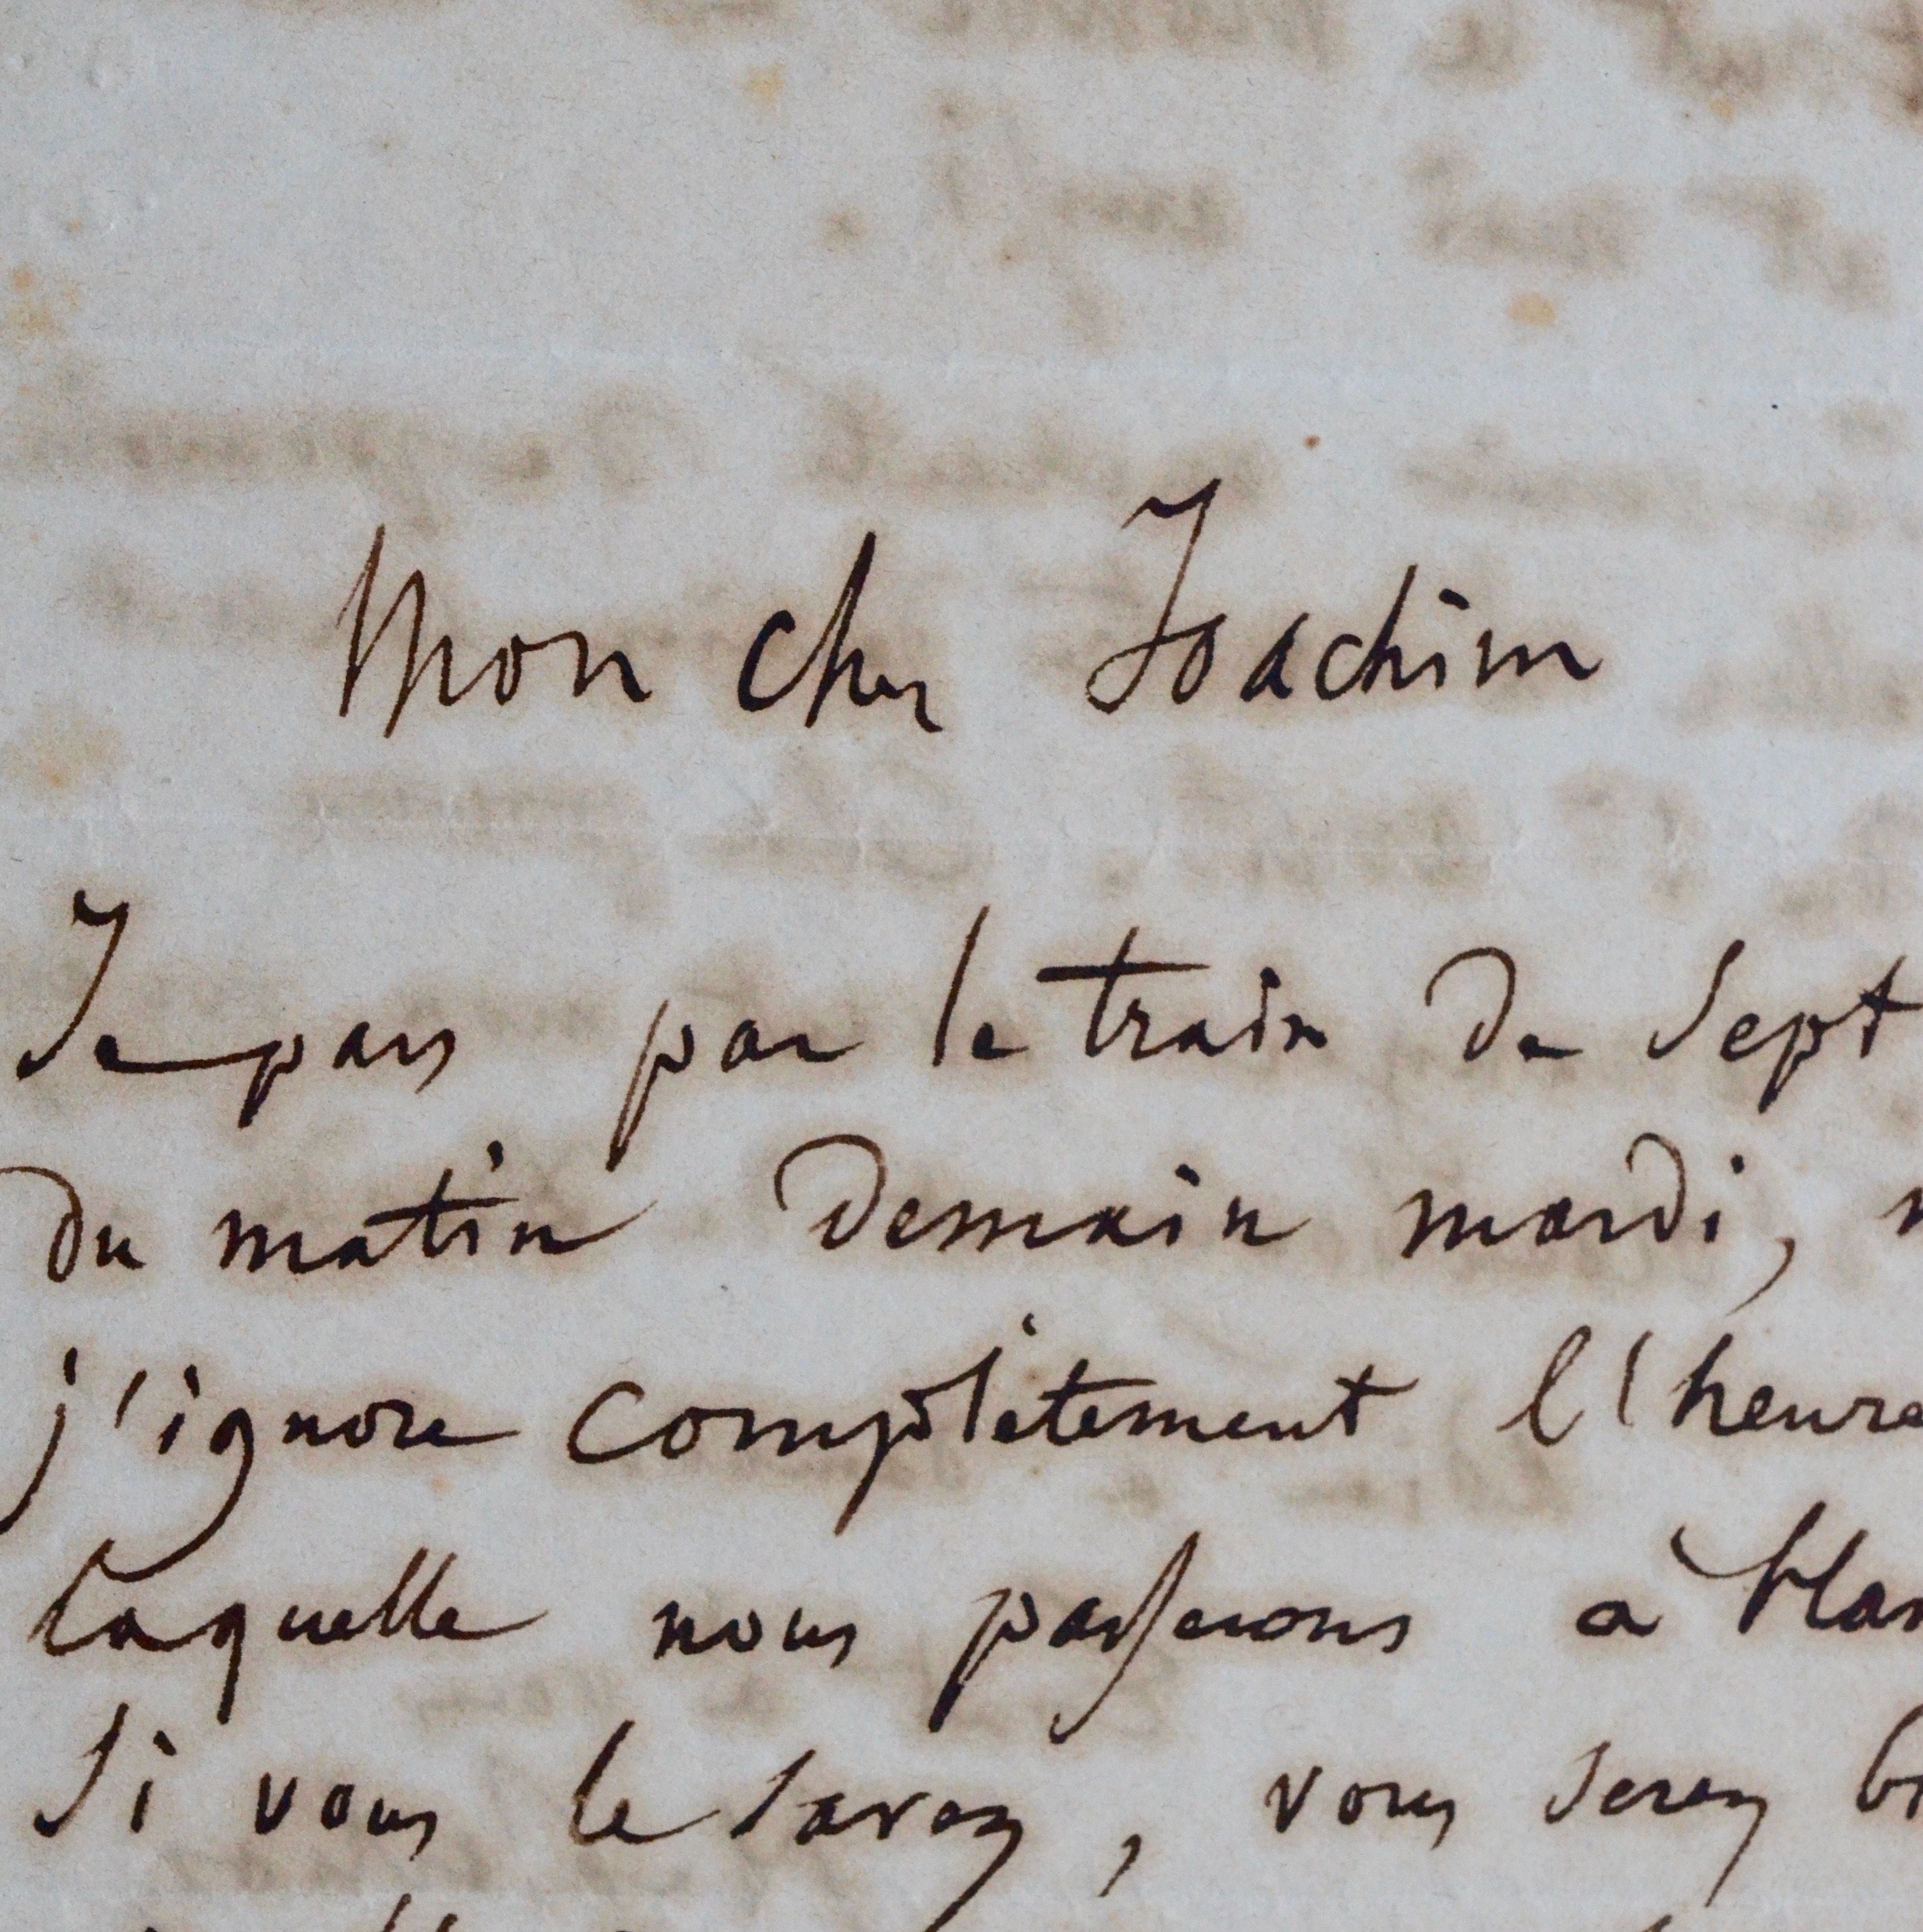 Mon cher Joachim
Je pars par le train de sept
du matin demain mardi,
j'ignore complètement l'heure
laquelle nous passerons à Han
Si vous le savez, vous serez b